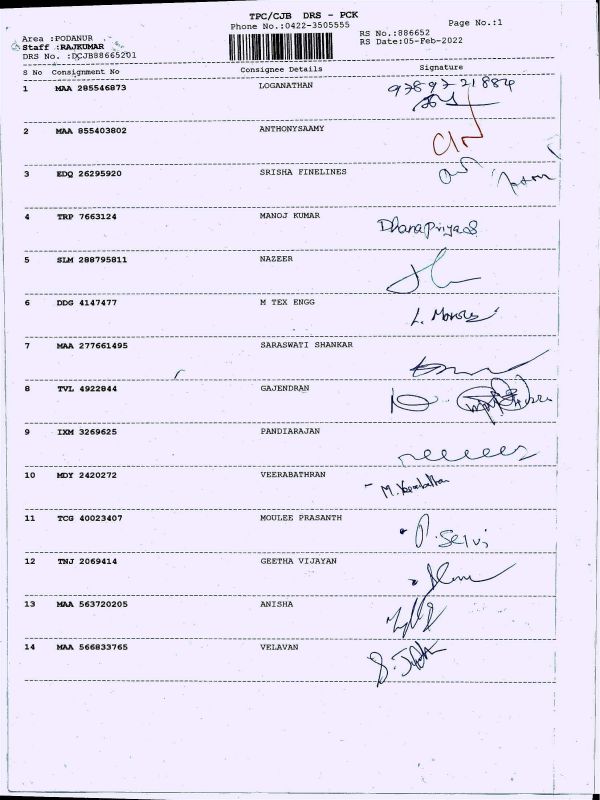 TPC/CJB DRS - PCK
Phone No.:0422-3505555
Page No.:1
Area :PODANUR
Staff :RAJKUMAR
DRS No. :DCJB88665201
RS No.:886652
RS Date:05-Feb-2022
S No Consignment No Consignee Details Signature
1 MAA 285546873 LOGANATHAN 9789721884
2 MAA 855403802 ANTHONYSAAMY
3 EDQ 26295920 SRISHA FINELINES
4 TRP 7663124 MANOJ KUMAR Dhanapriya S
5 SLM 288795811 NAZEER
6 DDG 4147477 M TEX ENGG
7 MAA 277661495 SARASWATI SHANKAR
8 TVL 4922844 GAJENDRAN
9 IXM 3269625 PANDIARAJAN
10 MDY 2420272 VEERABATHRAN M. Veerabathran
11 TCG 40023407 MOULEE PRASANTH P. Selvi
12 TNJ 2069414 GEETHA VIJAYAN
13 MAA 563720205 ANISHA
14 MAA 566833765 VELAVAN